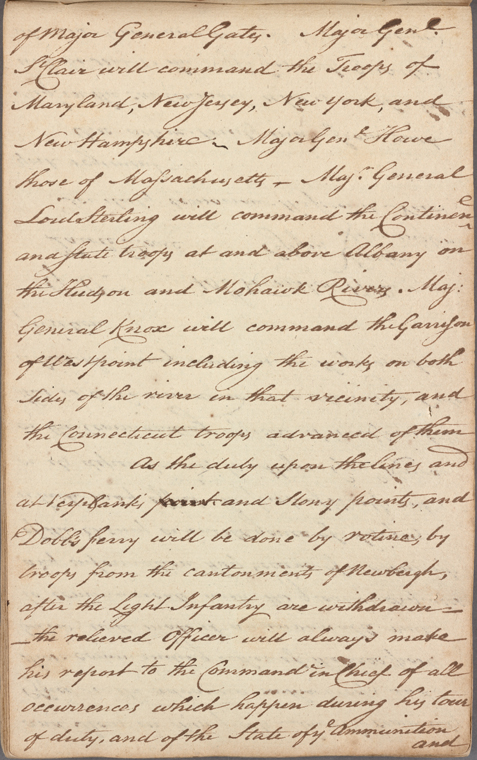 of Major General Gates. Major Genl.
St Clair will command the Troops of
Maryland, New Jersey, New York, and
New Hampshire - Major Genl. Howe
those of Massachusetts - Maj. General
Lord Sterling will command the Continen-
and State troops at and above Albany on
the Hudson and Mohawk Rivers. Maj:
General Knox will command the Garrison
of Westpoint including the works on both
sides of the river in that vicinity, and
the Connecticut troops advanced of them
As the duty upon the lines and
at Verplanks and Stony points, and
Dobb's ferry will be done by rotine, by
troops from the cantonments of Newbergh,
after the Light Infantry are withdrawn =
the relieved Officer will always make
his report to the Command in Chief of all
occurrences which happen during his tour
of duty, and of the State of ye Ammunition
and